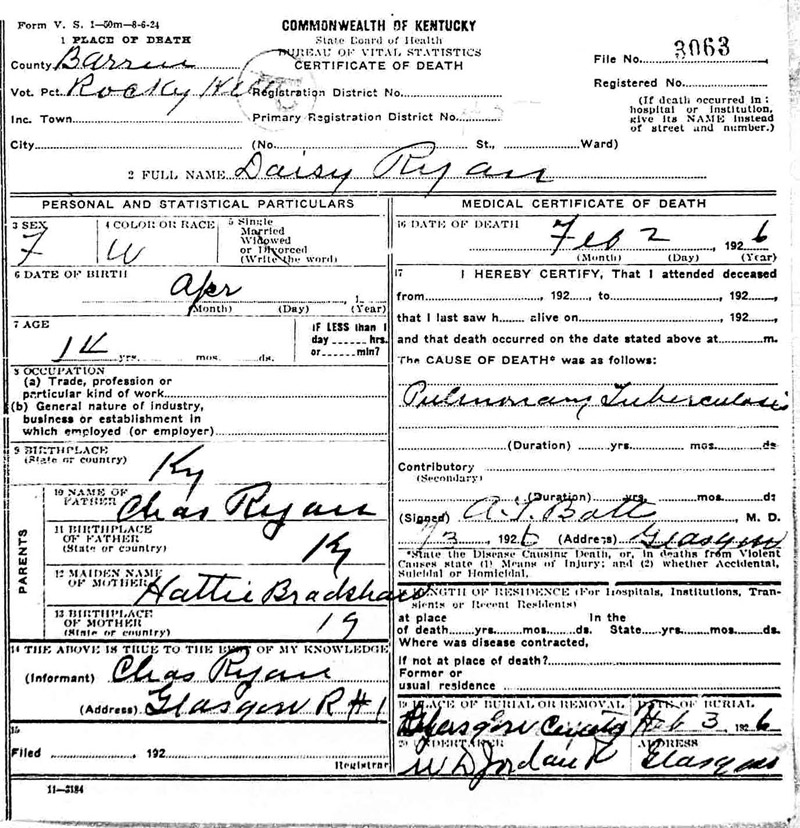 Form V. S. 1—50m—8-6-24
COMMONWEALTH OF KENTUCKY
State Board of Health
BUREAU OF VITAL STATISTICS
CERTIFICATE OF DEATH
1 PLACE OF DEATH
County Barren
Vot. Pct. Rocky Hill Registration District No.
Inc. Town Primary Registration District No.
City (No. St., Ward)
File No. 3063
Registered No.
(If death occurred in a
hospital or institution,
give its NAME instead
of street and number.)
2 FULL NAME Daisy Ryan
PERSONAL AND STATISTICAL PARTICULARS
3 SEX
F
4 COLOR OR RACE
W
5 Single
Married
Widowed
or Divorced
(Write the word)
6 DATE OF BIRTH
Apr , 1
(Month) (Day) (Year)
7 AGE
14 yrs. mos. ds.
IF LESS than 1
day hrs.
or min?
8 OCCUPATION
(a) Trade, profession or
particular kind of work
(b) General nature of industry,
business or establishment in
which employed (or employer)
9 BIRTHPLACE
(State or country)
Ky
PARENTS
10 NAME OF
FATHER
Chas Ryan
11 BIRTHPLACE
OF FATHER
(State or country)
Ky
12 MAIDEN NAME
OF MOTHER
Hattie Bradshaw
13 BIRTHPLACE
OF MOTHER
(State or country)
14 THE ABOVE IS TRUE TO THE BEST OF MY KNOWLEDGE
(Informant) Chas Ryan
(Address) Glasgow R #1
15
Filed , 192
Registrar
11—3184
MEDICAL CERTIFICATE OF DEATH
16 DATE OF DEATH
Feb 2 , 1926
(Month) (Day) (Year)
17 I HEREBY CERTIFY, That I attended deceased
from , 192 , to , 192 ,
that I last saw h alive on , 192 ,
and that death occurred on the date stated above at m.
The CAUSE OF DEATH* was as follows:
Pulmonary Tuberculosis
(Duration) yrs. mos. ds
Contributory
(Secondary)
(Duration) yrs. mos. ds
(Signed) , M. D.
1926 (Address) Glasgow
*State the Disease Causing Death, or, in deaths from Violent
Causes state (1) Means of Injury; and (2) whether Accidental,
Suicidal or Homicidal.
LENGTH OF RESIDENCE (For Hospitals, Institutions, Tran-
sients or Recent Residents)
at place In the
of death yrs. mos. ds. State yrs. mos. ds.
Where was disease contracted,
if not at place of death?
Former or
usual residence
19 PLACE OF BURIAL OR REMOVAL
Glasgow
DATE OF BURIAL
Feb 3 , 1926
20 UNDERTAKER
W D Jordan
ADDRESS
Glasgow